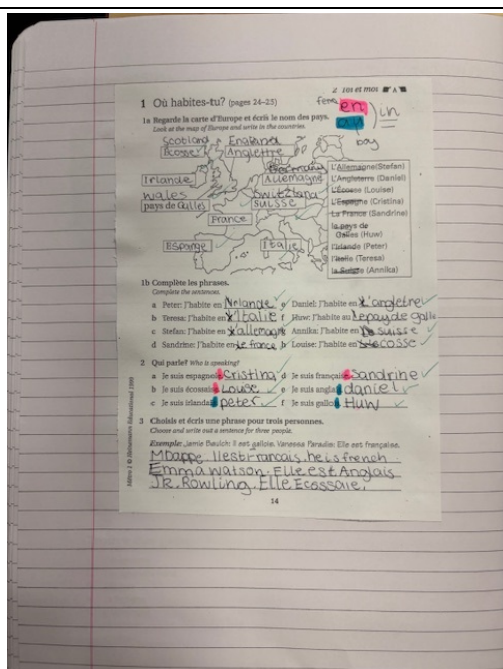 2 Toi et moi
1 Où habites-tu? (pages 24–25)
feme en
au ) in
pay
1a Regarde la carte d'Europe et écris le nom des pays.
Look at the map of Europe and write in the countries.
Scotland England
Ecosse Anglettre
Germany
Irlande Allemagne
wales Switzland
pays de Galles SUISSE
France
Espange Italie
L'Allemagne (Stefan)
L'Angleterre (Daniel)
L'Écosse (Louise)
L'Espagne (Cristina)
La France (Sandrine)
le pays de
Galles (Huw)
l'Irlande (Peter)
l'Italie (Teresa)
la Suisse (Annika)
1b Complète les phrases.
Complete the sentences.
a Peter: J'habite en Irlande e Daniel: J'habite en L'angletre
b Teresa: J'habite en L'Italie f Huw: J'habite au Lepayde galls
c Stefan: J'habite en L'allemagne g Annika: J'habite en la suisse
d Sandrine: J'habite en Le france h Louise: J'habite en cosse
2 Qui parle? Who is speaking?
a Je suis espagnole Cristina d Je suis française Sandrine
b Je suis écossaise Louse e Je suis anglais daniel
c Je suis irlandais peter f Je suis gallois Huw
3 Choisis et écris une phrase pour trois personnes.
Choose and write out a sentence for three people.
Exemple: Jamie Baulch: Il est gallois. Vanessa Paradis: Elle est française.
Mbappe. Il est Francais. he is french
Emma watson. Elle est Anglais
JK. Rowling. Elle Ecossaie.
Métro 1 © Heinemann Educational 1999
14